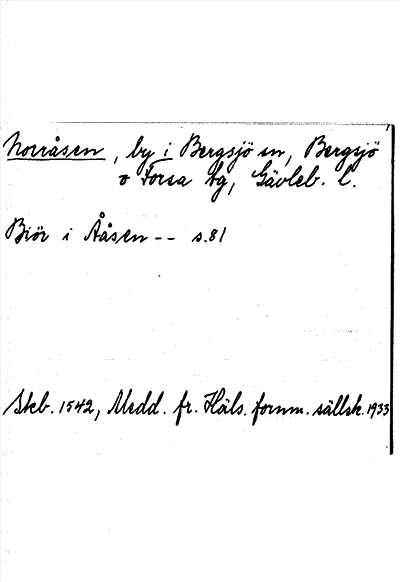 Norråsen, by i Bergsjö sn, Bergsjö
o Forsa tg, Gävleb. l.
Biör i Ååsen -- s.81
Skb. 1542, Medd. fr. Häls. fornm. sällsk. 1933